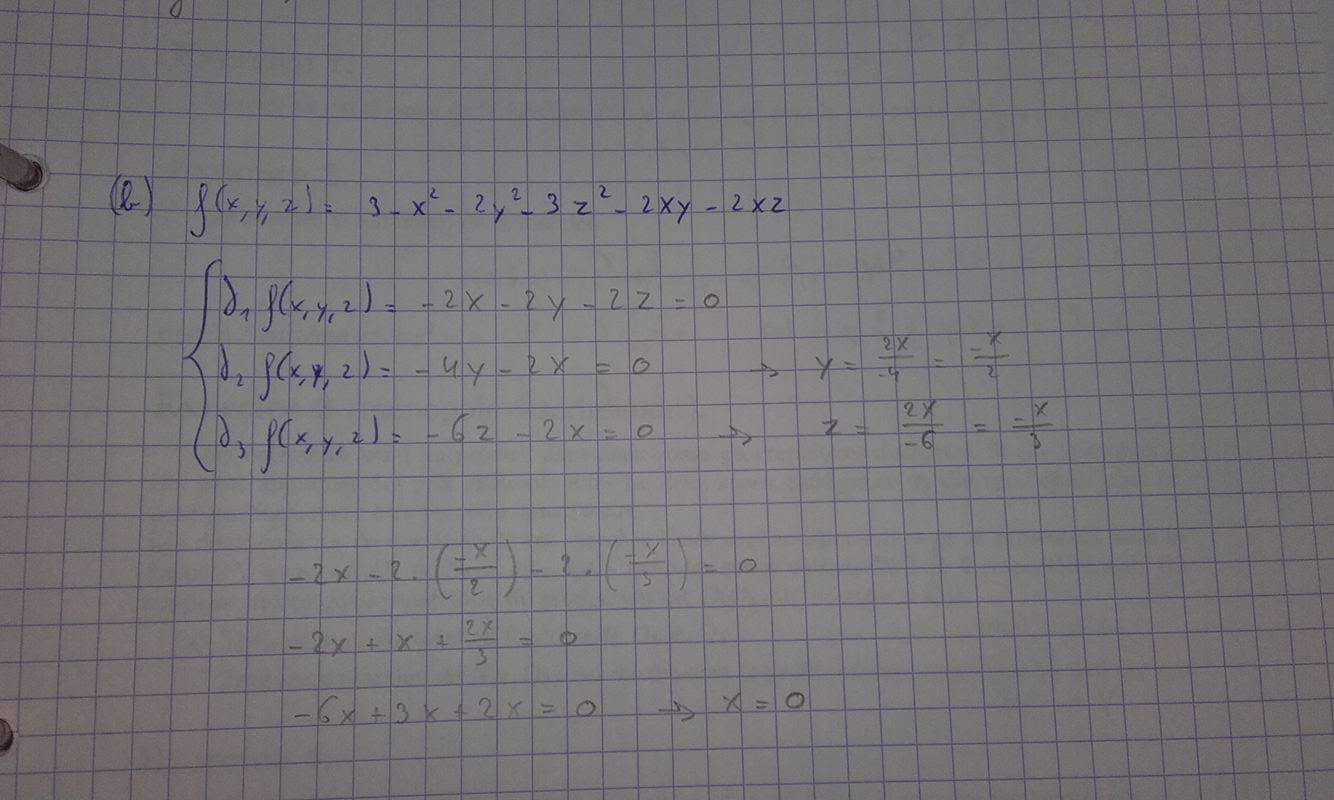 (b) f(x,y,z) = 3 - x² - 2y² - 3z² - 2xy - 2xz
∂₁ f(x,y,z) = -2x - 2y - 2z = 0
∂₂ f(x,y,z) = -4y - 2x = 0 → y = 2x/-4 = -x/2
∂₃ f(x,y,z) = -6z - 2x = 0 → z = 2x/-6 = -x/3
-2x - 2·(-x/2) - 2·(-x/3) = 0
-2x + x + 2x/3 = 0
-6x + 3x + 2x = 0 → x = 0